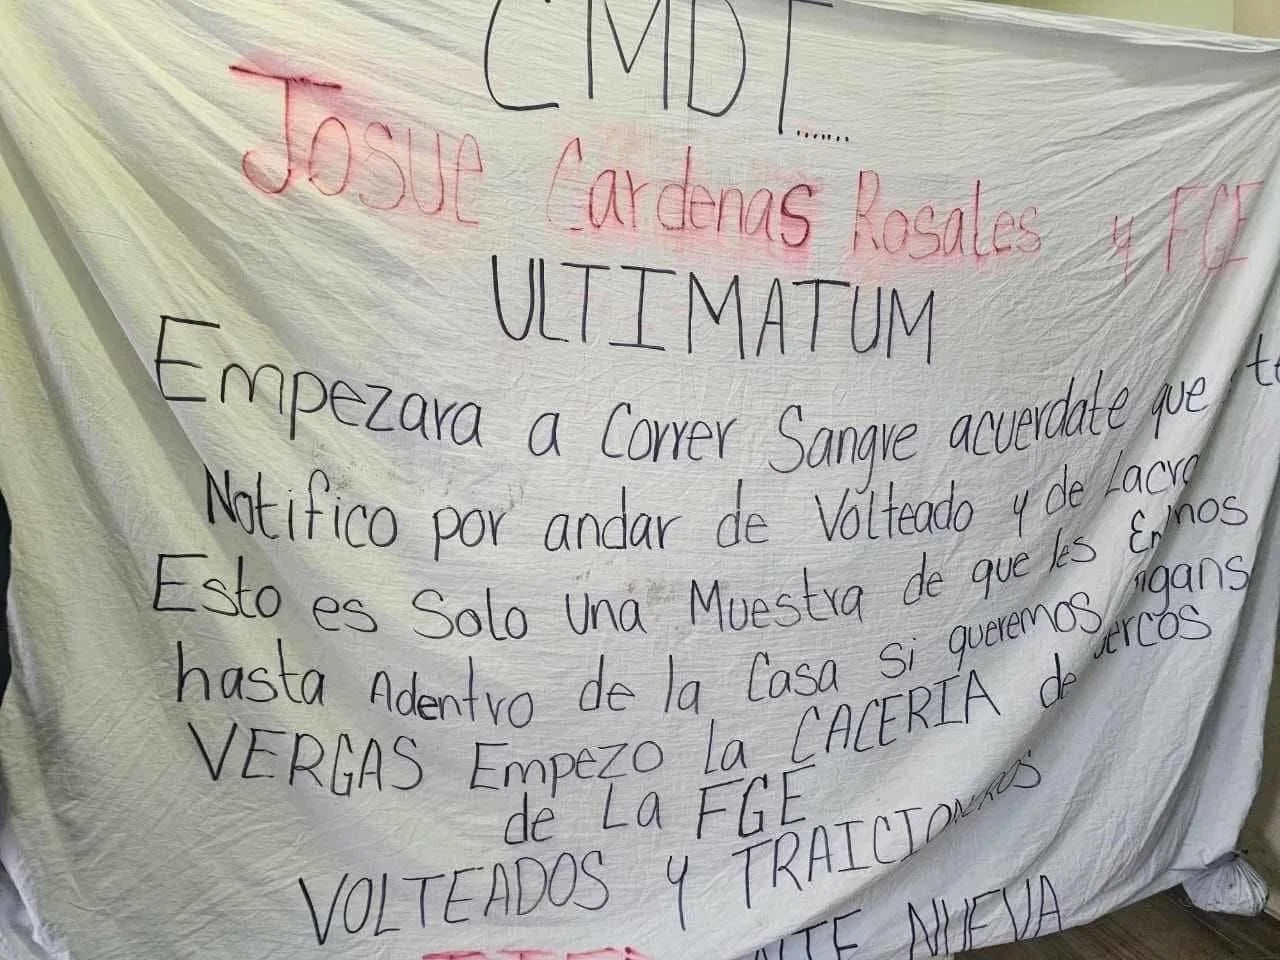 CMDT.......
Josue Cardenas Rosales y FGE
ULTIMATUM
Empezara a Correr Sangre acuerdate que te
Notifico por andar de Volteado y de Lacra
Esto es Solo una Muestra de que les
hasta Adentro de la Casa si queremos
VERGAS Empezo la CACERIA de
de La FGE
VOLTEADOS y TRAICIONEROS
NUEVA